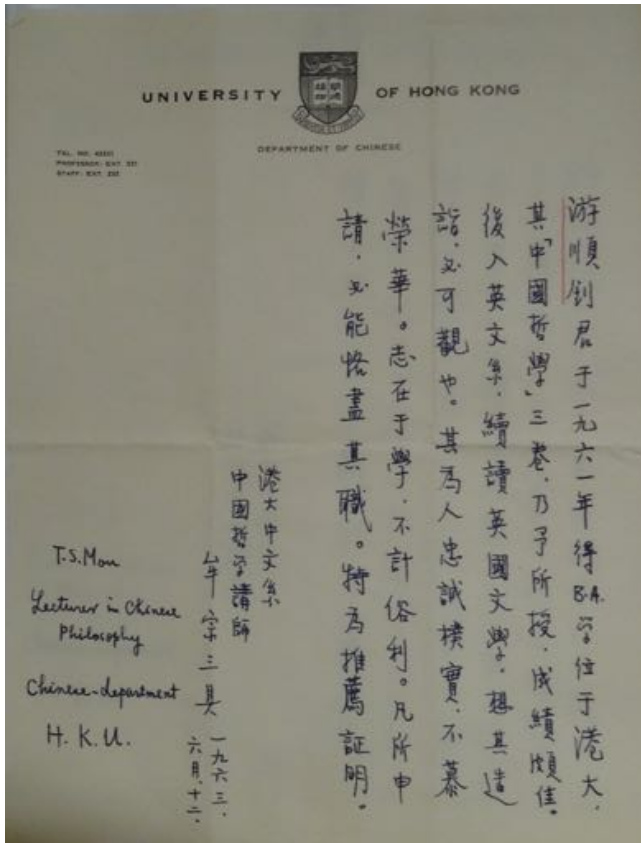 UNIVERSITY OF HONG KONG
DEPARTMENT OF CHINESE
TEL. NO.
PROFESSOR: EXT.
STAFF: EXT.
游順釗君于一九六一年得B.A.学位于港大,
其「中國哲學」三卷,乃予所授,成績頗佳。
後入英文系,續讀英國文學,想其造
詣,必可觀也。其為人忠誠樸實,不慕
榮華。志在于學,不計俗利。凡所申
請,必能恪盡其職。特為推薦証明。
港大中文系
中國哲学講師
牟宗三具
一九六三、
六月、十二、
T.S.Mou
Lecturer in Chinese
Philosophy
Chinese-department
H.K.U.